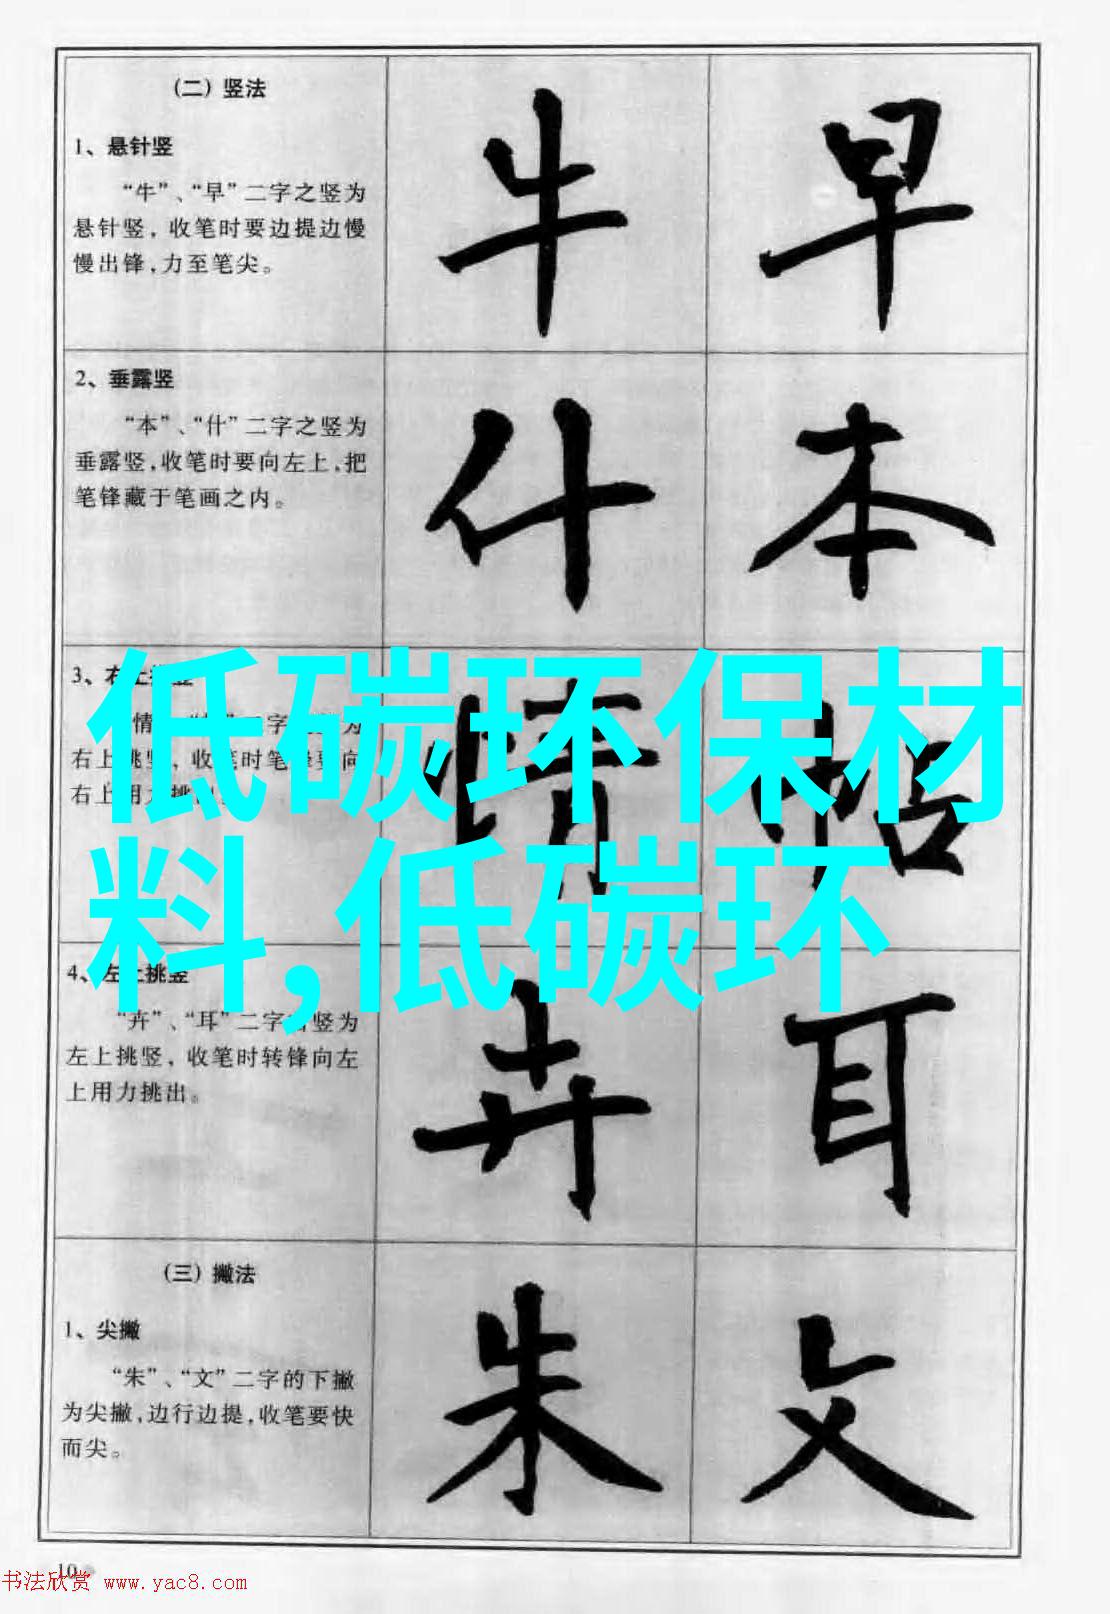 （二）竖法
牛 早
1、悬针竖
“牛”、“早”二字之竖为
悬针竖，收笔时要边提边慢
慢出锋，力至笔尖。
2、垂露竖
什 本
“本”、“什”二字之竖为
垂露竖，收笔时要向左上，把
笔锋藏于笔画之内。
3、右上
情 帖
情 二字 为
右上挑竖，收笔时笔 要向
右上用力挑出
低碳环保材
料,低碳环
4、左上挑竖
卉 耳
“卉”、“耳”二字 竖为
左上挑竖，收笔时转锋向左
上用力挑出。
（三）撇法
朱 文
1、尖撇
“朱”、“文”二字的下撇
为尖撇，边行边提，收笔要快
而尖。
10
书法欣赏 www.yac8.com